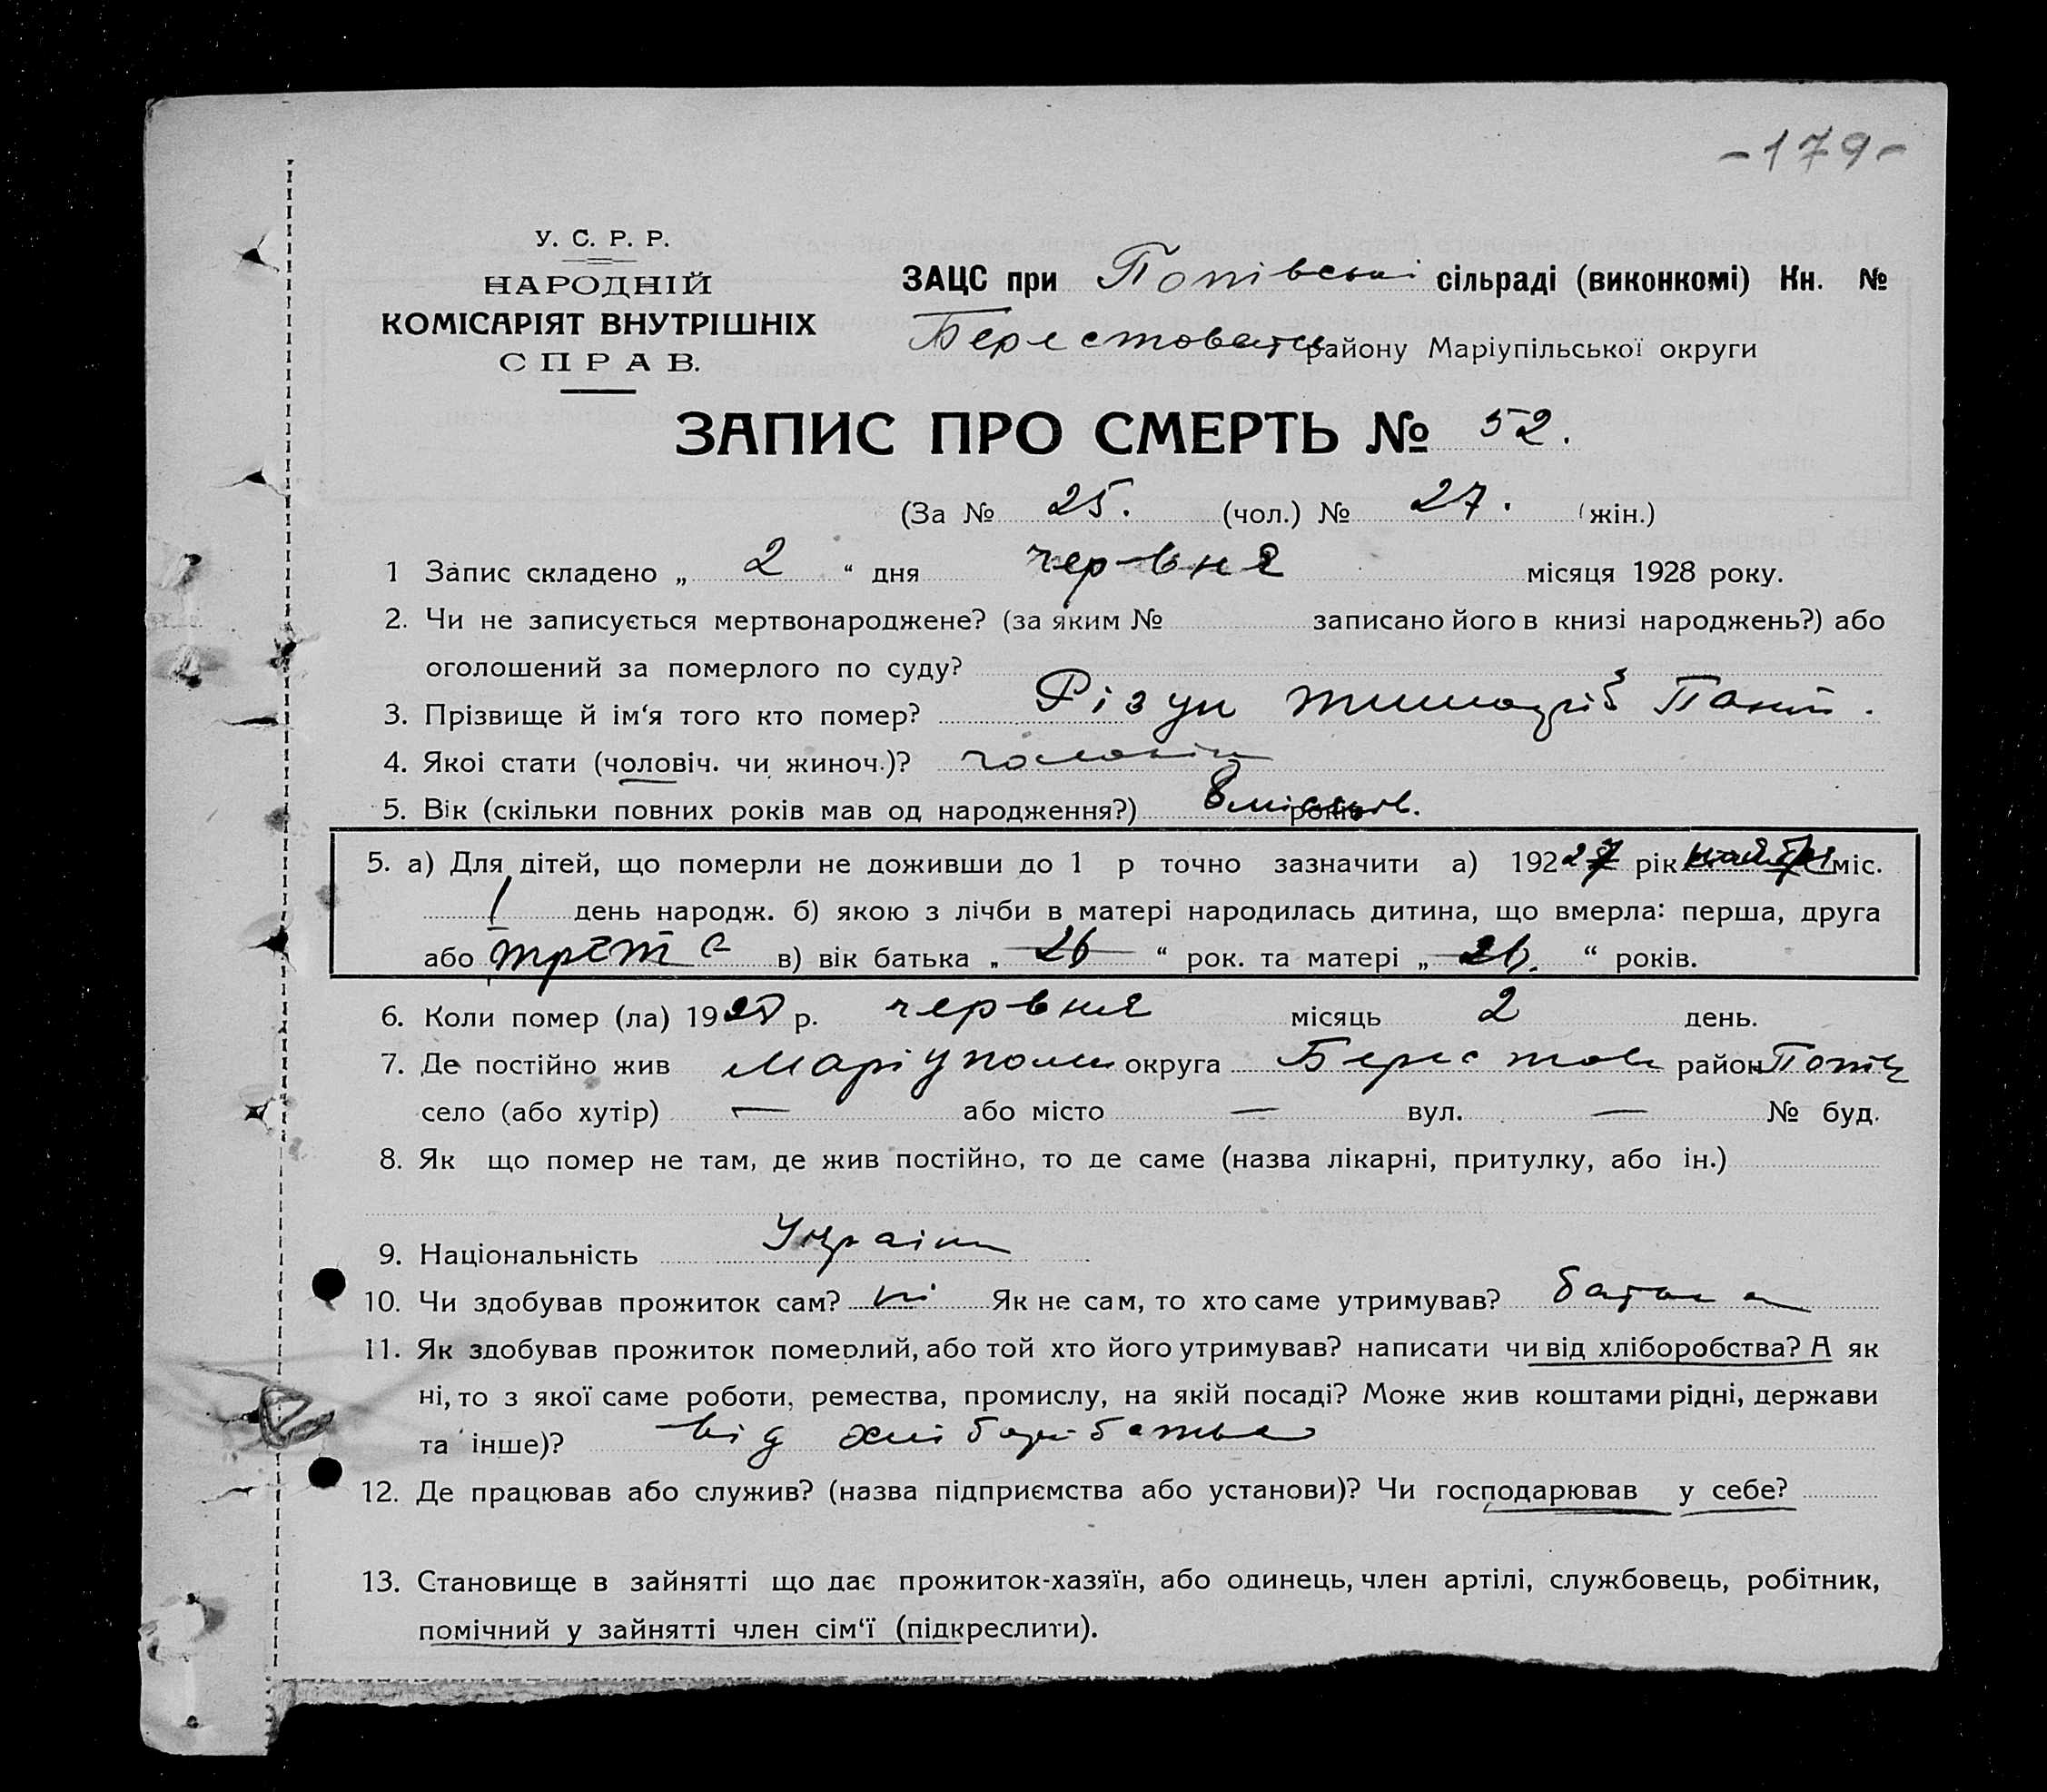 -179-
У. С. Р. Р.
НАРОДНІЙ
КОМІСАРІЯТ ВНУТРІШНІХ
СПРАВ.
ЗАЦС при Попівські сільраді (виконкомі) Кн. №
району Маріупільської округи
ЗАПИС ПРО СМЕРТЬ № 52.
(За № 25. (чол.) № 27. (жін.)
1 Запис складено „ 2 “ дня червня місяця 1928 року.
2. Чи не записується мертвонароджене? (за яким № записано його в книзі народжень?) або
оголошений за померлого по суду?
3. Прізвище й ім‘я того кто помер?
4. Якоі стати (чоловіч. чи жиноч.)?
5. Вік (скільки повних років мав од народження?) 8
5. а) Для дітей, що померли не доживши до 1 р точно зазначити а) 192 рік міс.
1 день народж. б) якою з лічби в матері народилась дитина, що вмерла: перша, друга
або в) вік батька „ 26 “ рок. та матері „ 26. “ років.
6. Коли помер (ла) 1928 р. червня місяць 2 день.
7. Де постійно жив округа район
село (або хутір) — або місто — вул. — № буд.
8. Як що помер не там, де жив постійно, то де саме (назва лікарні, притулку, або ін.)
9. Національність
10. Чи здобував прожиток сам? ні Як не сам, то хто саме утримував?
11. Як здобував прожиток померлий, або той хто його утримував? написати чи від хліборобства? А як
ні, то з якої саме роботи, ремества, промислу, на якій посаді? Може жив коштами рідні, держави
та інше)? від
12. Де працював або служив? (назва підприємства або установи)? Чи господарював у себе?
13. Становище в зайнятті що дає прожиток-хазяїн, або одинець, член артілі, службовець, робітник,
помічний у зайнятті член сім‘ї (підкреслити).